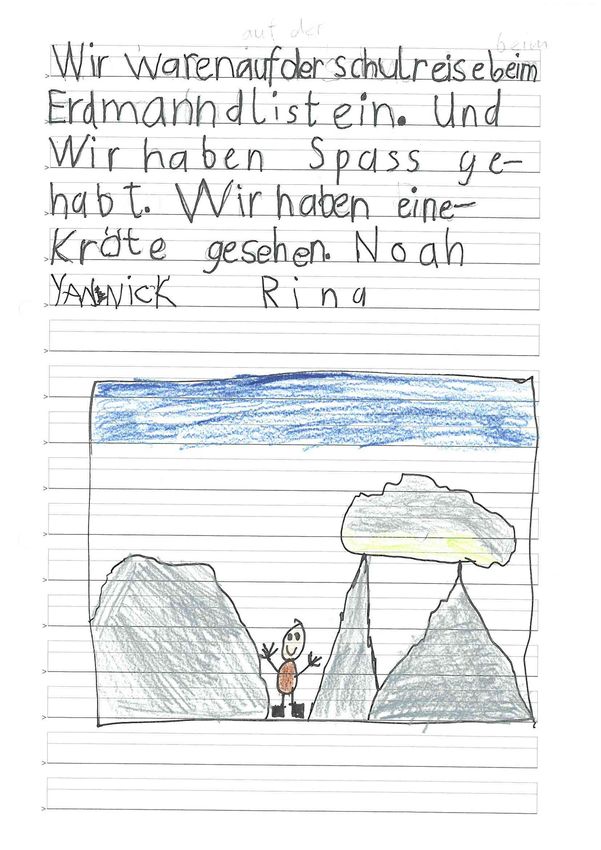 auf der beim
Wir warenaufderschulreisebeim
Erdmanndlistein. Und
Wir haben Spass ge-
habt. Wir haben eine-
Kröte gesehen. Noah
YANNICK Rina